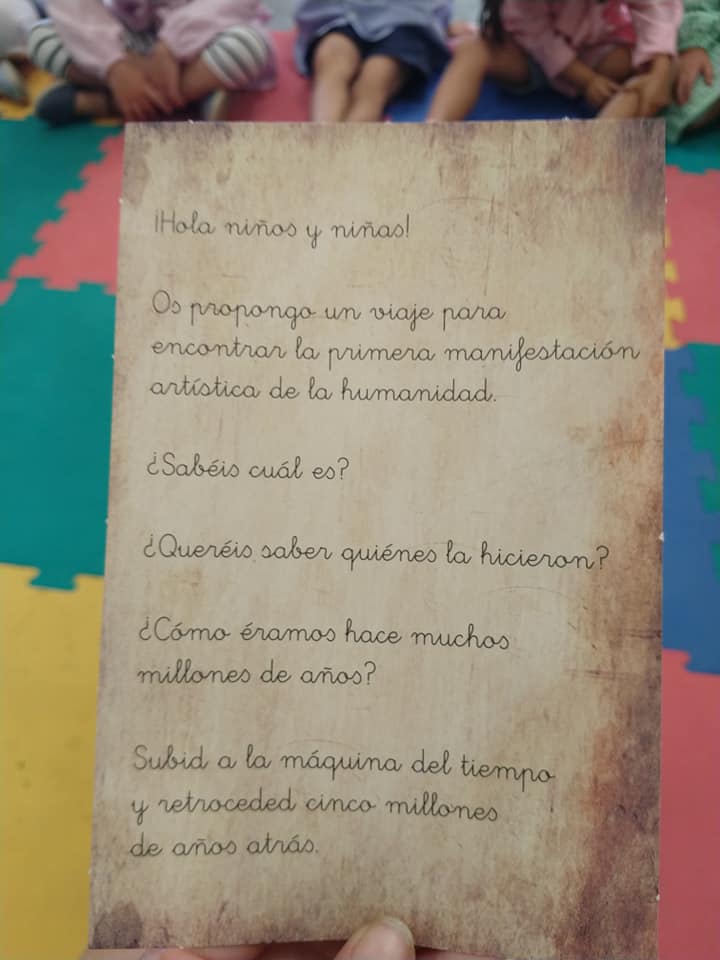 ¡Hola niños y niñas!
Os propongo un viaje para
encontrar la primera manifestación
artística de la humanidad.
¿Sabéis cuál es?
¿Queréis saber quiénes la hicieron?
¿Cómo éramos hace muchos
millones de años?
Subid a la máquina del tiempo
y retroceded cinco millones
de años atrás.